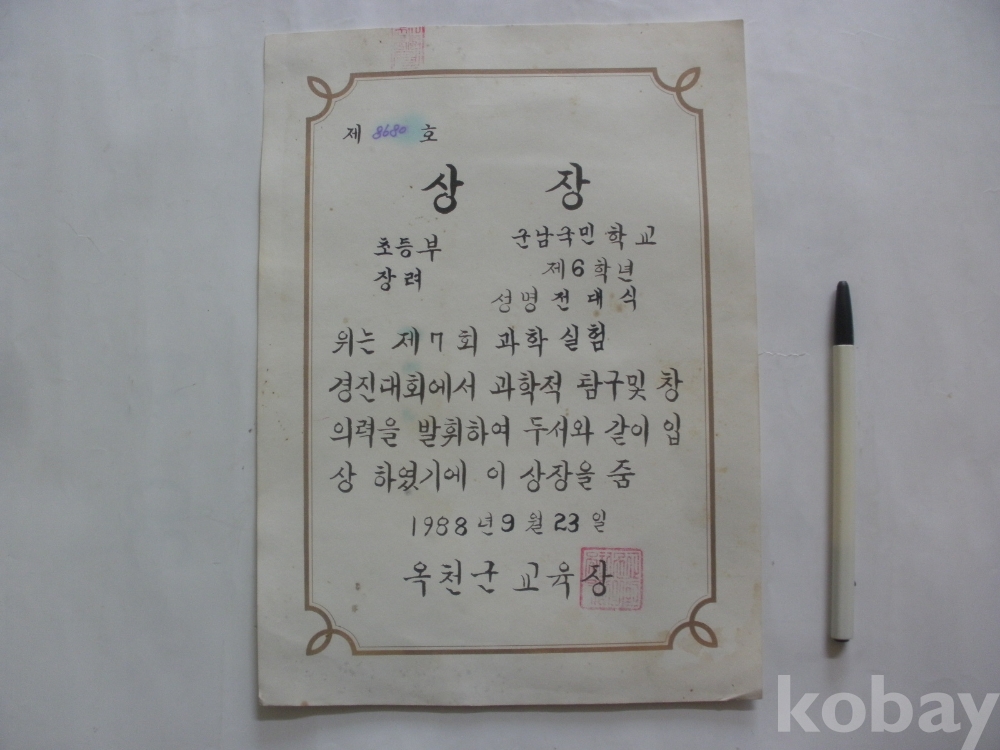 제 8680 호
상 장
초등부 군남국민학교
장려 제6학년
성명 전대식
위는 제7회 과학실험
경진대회에서 과학적 탐구및 창
의력을 발휘하여 두서와 같이 입
상 하였기에 이 상장을 줌
1988년 9월 23일
옥천군 교육장
kobay